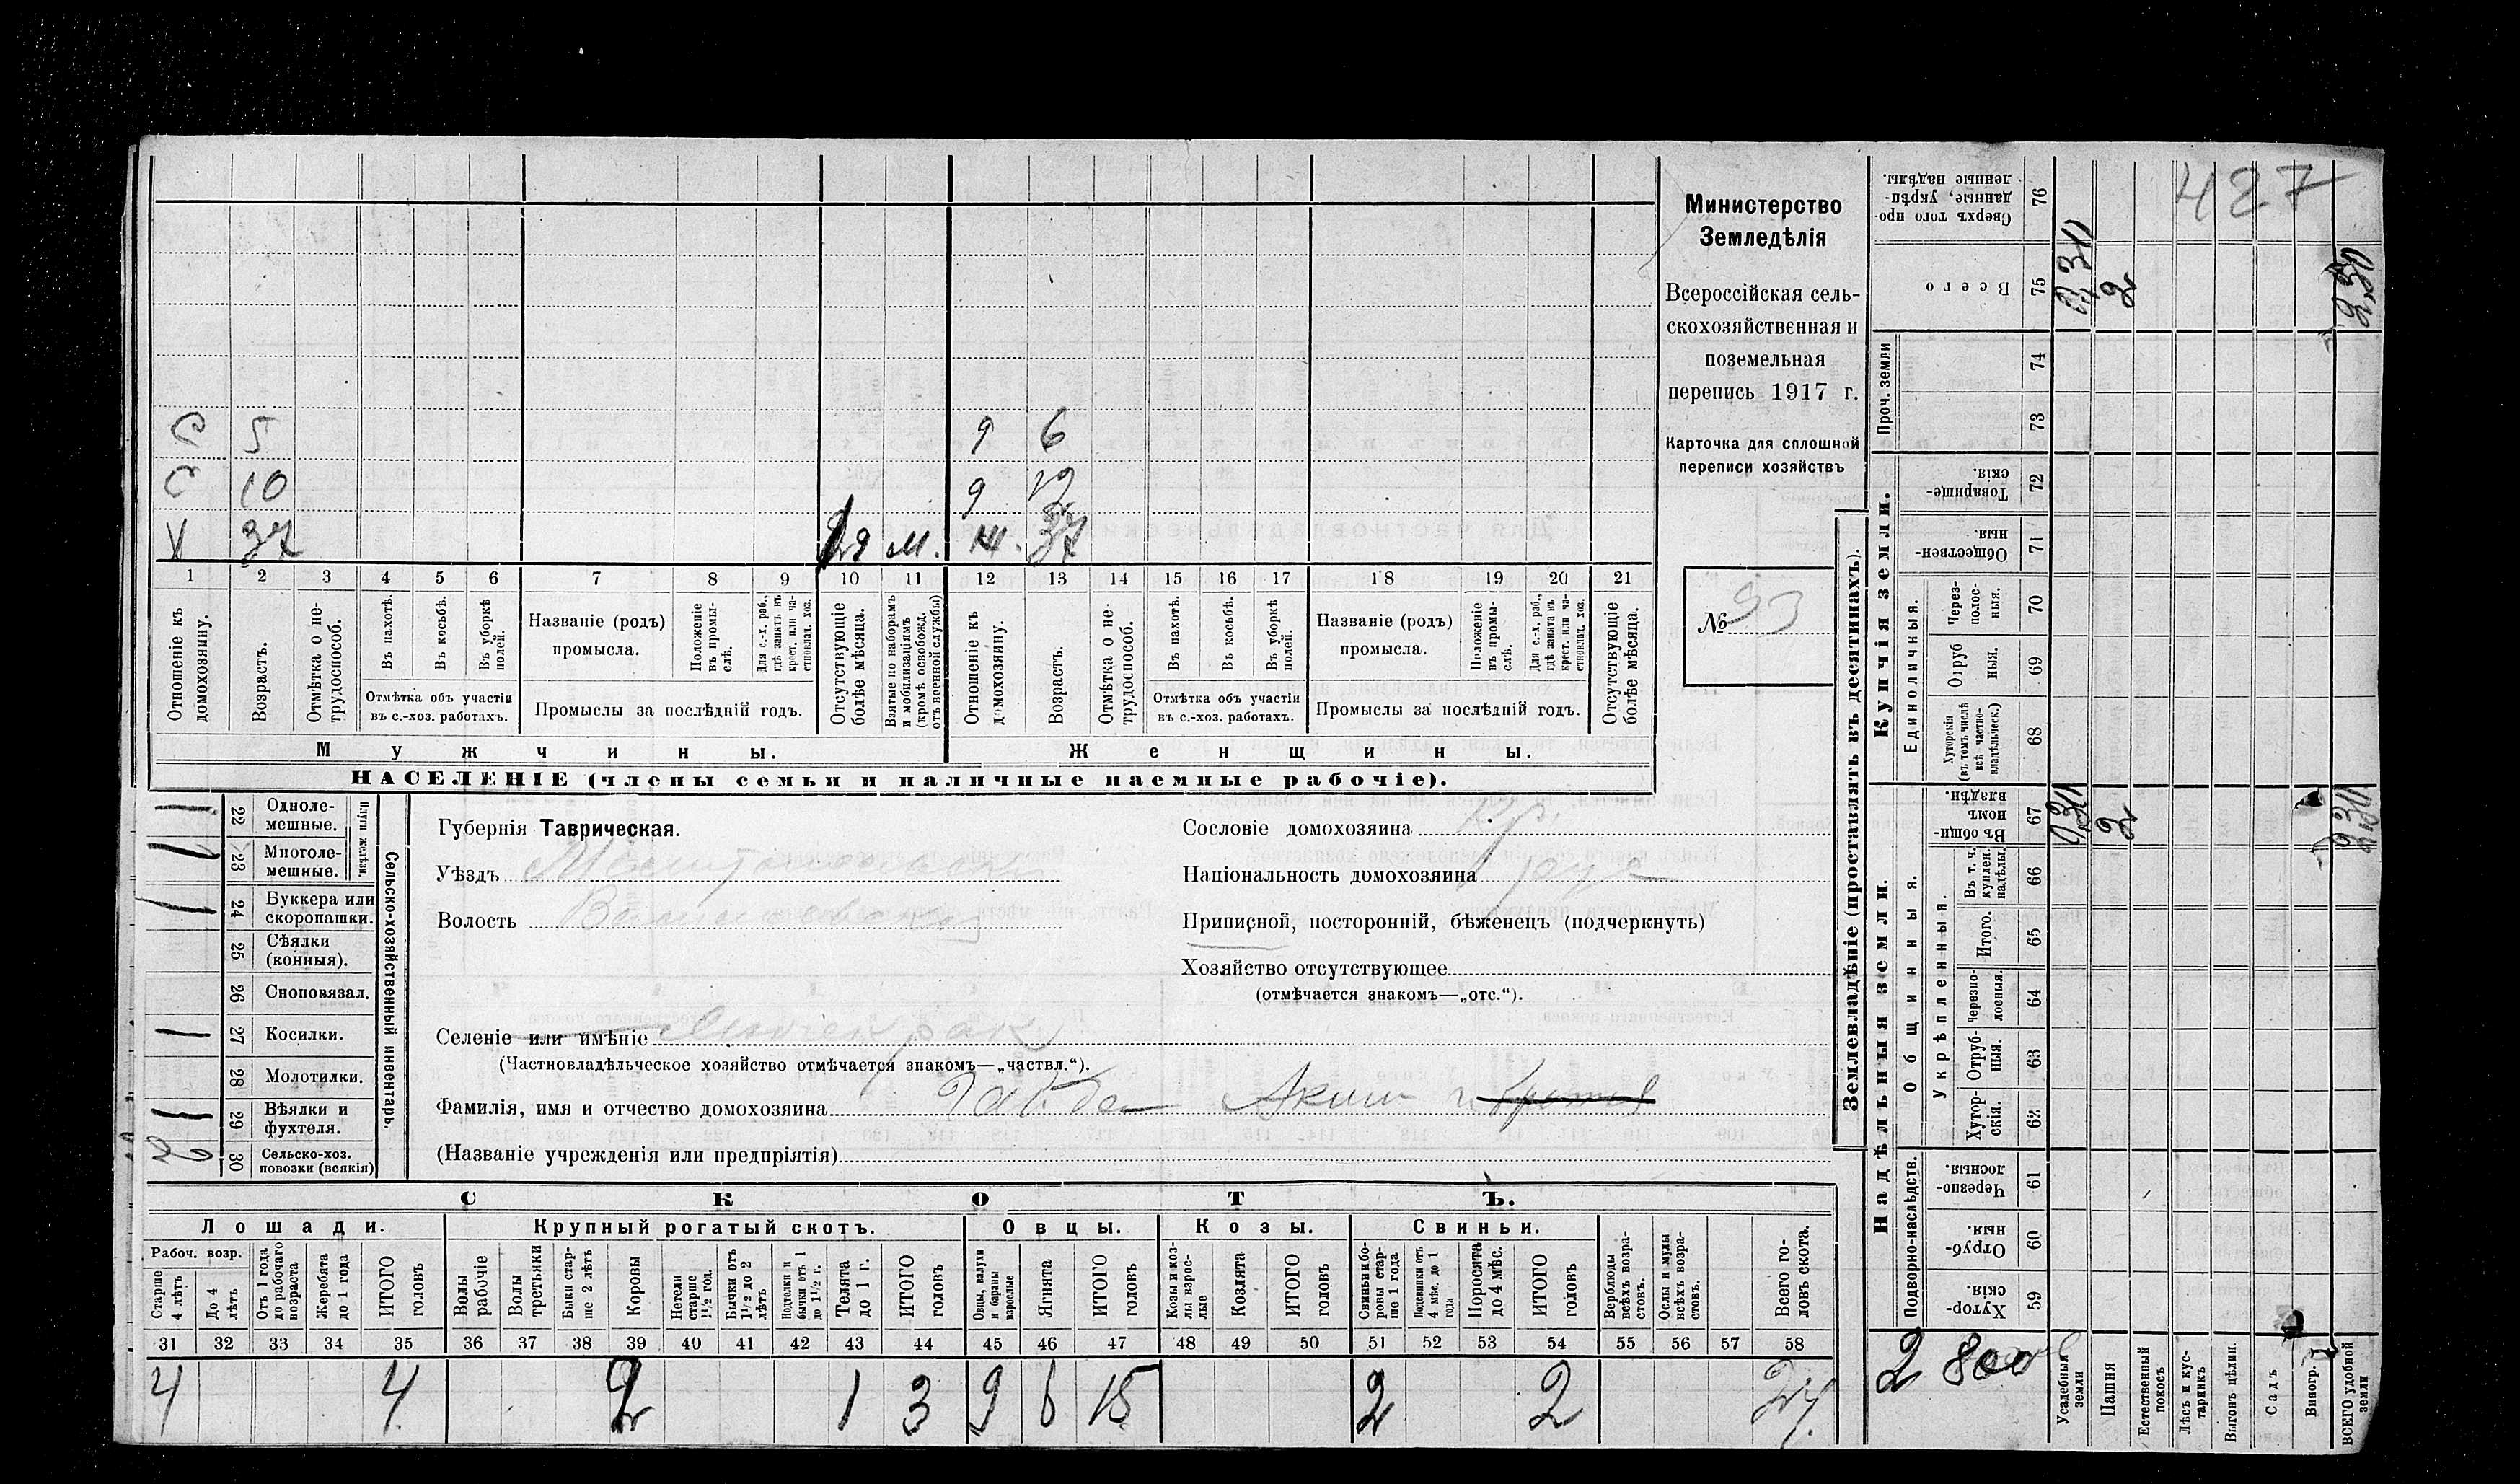 427
Министерство
Земледѣлія
Всероссійская сель-
скохозяйственная и
поземельная
перепись 1917 г.
Карточка для сплошной
переписи хозяйствъ
№ 93
С 5 9 6
С 10 9 12
V 37 М. Ж. 37
1 2 3 4 5 6 7 8 9 10 11 12 13 14 15 16 17 18 19 20 21
Отношеніе къ домохозяину.
Возрастъ.
Отмѣтка о не-трудоспособ.
Въ пахотѣ.
Въ косьбѣ.
Въ уборкѣ полей.
Отмѣтка объ участіи
въ с.-хоз. работахъ.
Названіе (родъ)
промысла.
Положеніе въ промы-слѣ.
Для с.-х. раб., гдѣ занятъ въ крест. или ча-стновлад. хоз.
Промыслы за послѣдній годъ.
Отсутствующіе болѣе мѣсяца.
Взятые по наборамъ и мобилизаціямъ (кромѣ освобожд. отъ военной службы)
Отношеніе къ домохозяину.
Возрастъ.
Отмѣтка о не-трудоспособ.
Въ пахотѣ.
Въ косьбѣ.
Въ уборкѣ полей.
Отмѣтка объ участіи
въ с.-хоз. работахъ.
Названіе (родъ)
промысла.
Положеніе въ промы-слѣ.
Для с.-х. раб., гдѣ занята въ крест. или ча-стновлад. хоз.
Промыслы за послѣдній годъ.
Отсутствующіе болѣе мѣсяца.
Мужчины. Женщины.
НАСЕЛЕНІЕ (члены семьи и наличные наемные рабочіе).
Сельско-хозяйственный инвентарь.
Плуги желѣзн.
22 Одноле-мешные.
23 Многоле-мешные.
24 Буккера или скоропашки.
25 Сѣялки (конныя).
26 Сноповязал.
27 Косилки.
28 Молотилки.
29 Вѣялки и фухтеля.
30 Сельско-хоз. повозки (всякія)
Губернія Таврическая.
Уѣздъ
Волость
Селеніе или имѣніе
(Частновладѣльческое хозяйство отмѣчается знакомъ—„частвл.“).
Фамилія, имя и отчество домохозяина Аким
(Названіе учрежденія или предпріятія)
Сословіе домохозяина кр.
Національность домохозяина рус
Приписной, посторонній, бѣженецъ (подчеркнуть)
Хозяйство отсутствующее
(отмѣчается знакомъ—„отс.“).
СКОТЪ.
Лошади. Крупный рогатый скотъ. Овцы. Козы. Свиньи.
Рабоч. возр.
Старше 4 лѣтъ
До 4 лѣтъ
Отъ 1 года до рабочаго возраста
Жеребята до 1 года
ИТОГО головъ
Волы рабочіе
Волы третьяки
Быки стар-ше 2 лѣтъ
Коровы
Нетели старше 1½ год.
Бычки отъ 1½ до 2 лѣтъ
Подтелки и бычки отъ 1 до 1½ г.
Телята до 1 г.
ИТОГО головъ
Овцы, валухи и бараны взрослые
Ягнята
ИТОГО головъ
Козы и коз-лы взрос-лые
Козлята
ИТОГО головъ
Свиньи и бо-ровы стар-ше 1 года
Подсвинки отъ 4 мѣс. до 1 года
Поросята до 4 мѣс.
ИТОГО головъ
Верблюды всѣхъ возра-стовъ.
Ослы и мулы всѣхъ возра-стовъ.
Всего го-ловъ скота.
31 32 33 34 35 36 37 38 39 40 41 42 43 44 45 46 47 48 49 50 51 52 53 54 55 56 57 58
4 4 2 1 3 9 6 15 2 2 24
Землевладѣніе (проставлять въ десятинахъ).
Надѣльныя земли. Купчія земли.
Проч. земли
Сверхъ того про-данные, укрѣп-ленные надѣлы. 76
Всего 75
74
73
Товарище-скія. 72
Обществен-ныя 71
Единоличныя.
Через-полос-ныя. 70
Отруб ныя. 69
Хуторскія (въ томъ числѣ всѣ частно-владѣльческ.) 68
Общинныя.
Въ общин-номъ владѣн. 67
Укрѣпленныя.
Въ т. ч. куплен. надѣлы. 66
Итого. 65
Черезпо-лосныя. 64
Отруб-ныя. 63
Хутор-скія. 62
Подворно-наслѣдств.
Черезпо-лосныя. 61
Отруб-ныя. 60
Хутор-скія. 59
2 800
Усадебныя земли
Пашня
Естественный покосъ
Лѣсъ и кус-тарникъ
Выгонъ цѣлин.
Садъ
Виногр.
ВСЕГО удобной земли
0,30 2 2,30
0,30 2 2,30